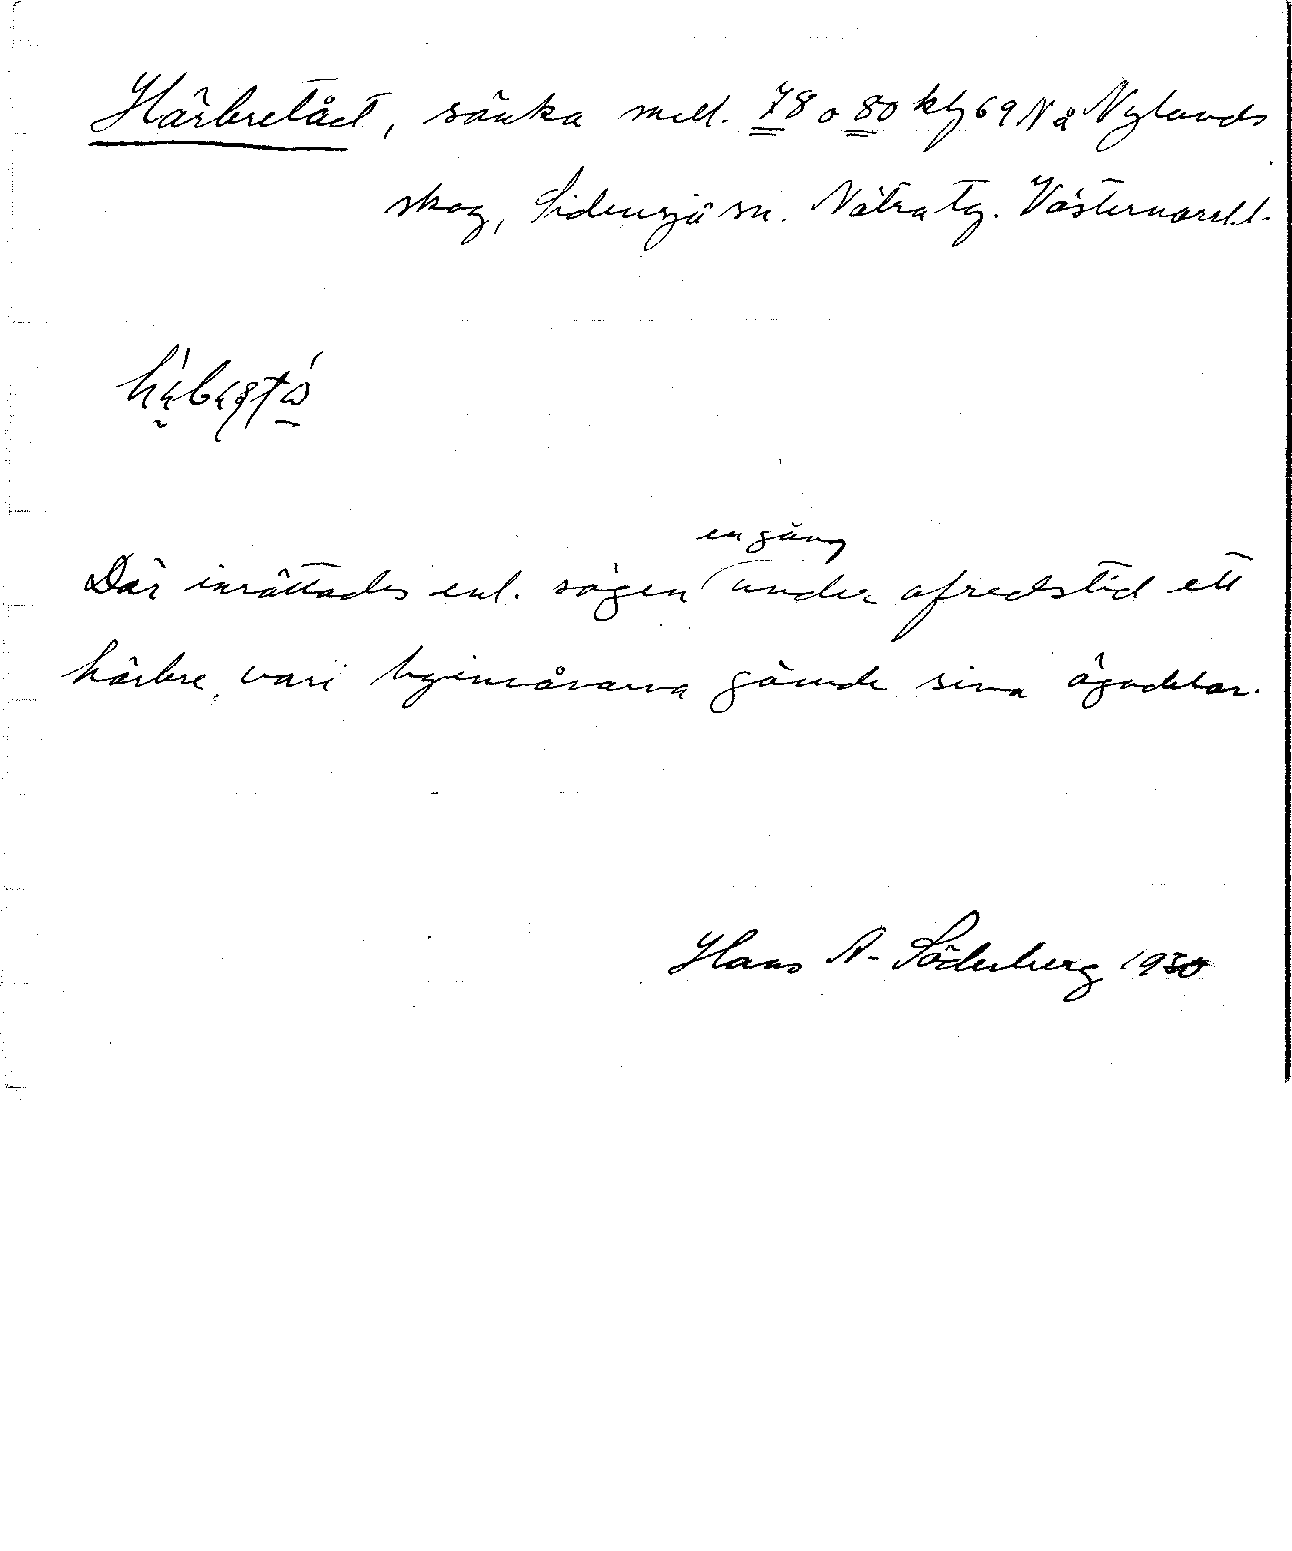 Härbretået, sänka mell. 78 o 80 kbl 69 N å Nylands
skog, Sidensjö sn. Nätra tg. Västernorrl. l.
en gång
Där inrättades enl. sägen under ofredstid ett
härbre, vari byinvånarna gömde sina ägodelar.
Hans A-Söderberg 1930